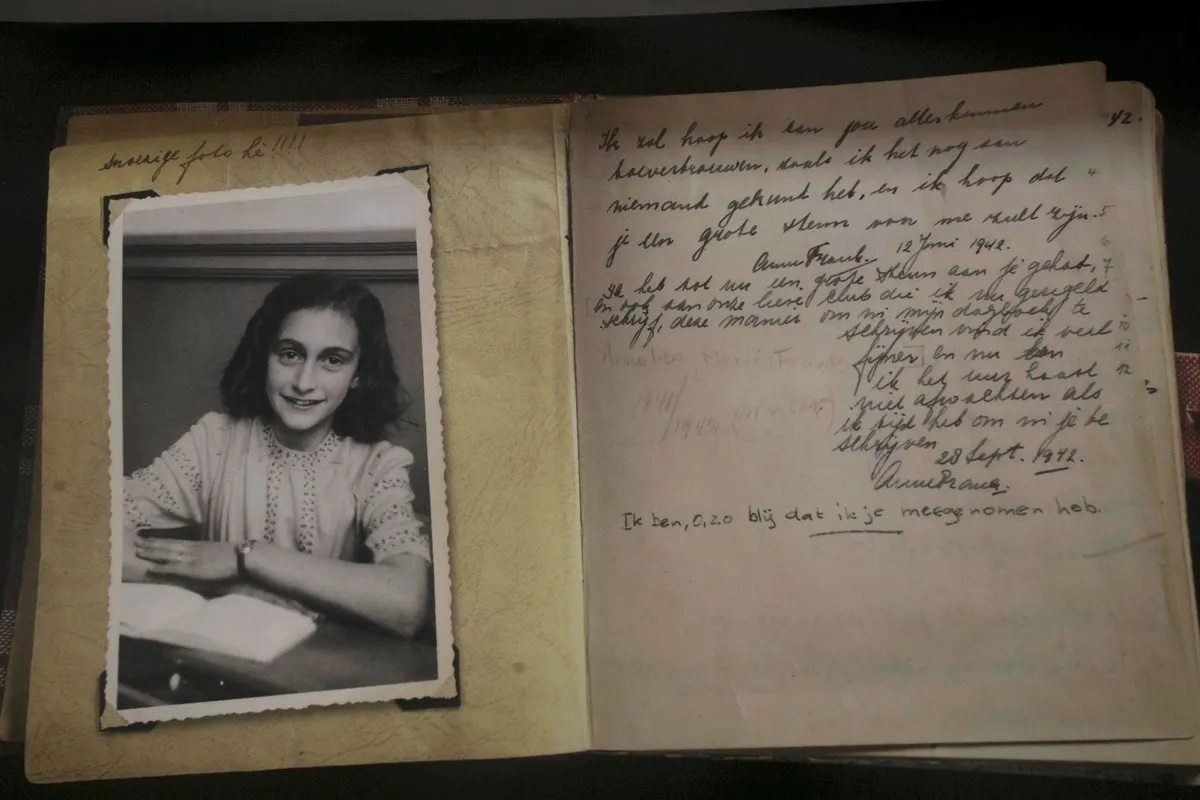 snoezige foto hè!!!!
Ik zal hoop ik aan jou alles kunnen
42.
toevertrouwen, zoals ik het nog aan
niemand gekunt heb, en ik hoop dat 4
je een grote steun voor me zult zijn. 5
Anne Frank. 12 Juni 1942. 6
Ik heb tot nu een grote steun aan je gehad, 7
en ook aan onze lieve club die ik nu geregeld
schrijf, deze manier om in mijn dagboek te
schrijven vind ik veel 10
fijner en nu kan 11
ik het uur haast 12
niet afwachten als
ik tijd heb om in je te
schrijven
28 Sept. 1942.
Anne Frank.
Ik ben, O, zo blij dat ik je meegenomen heb.